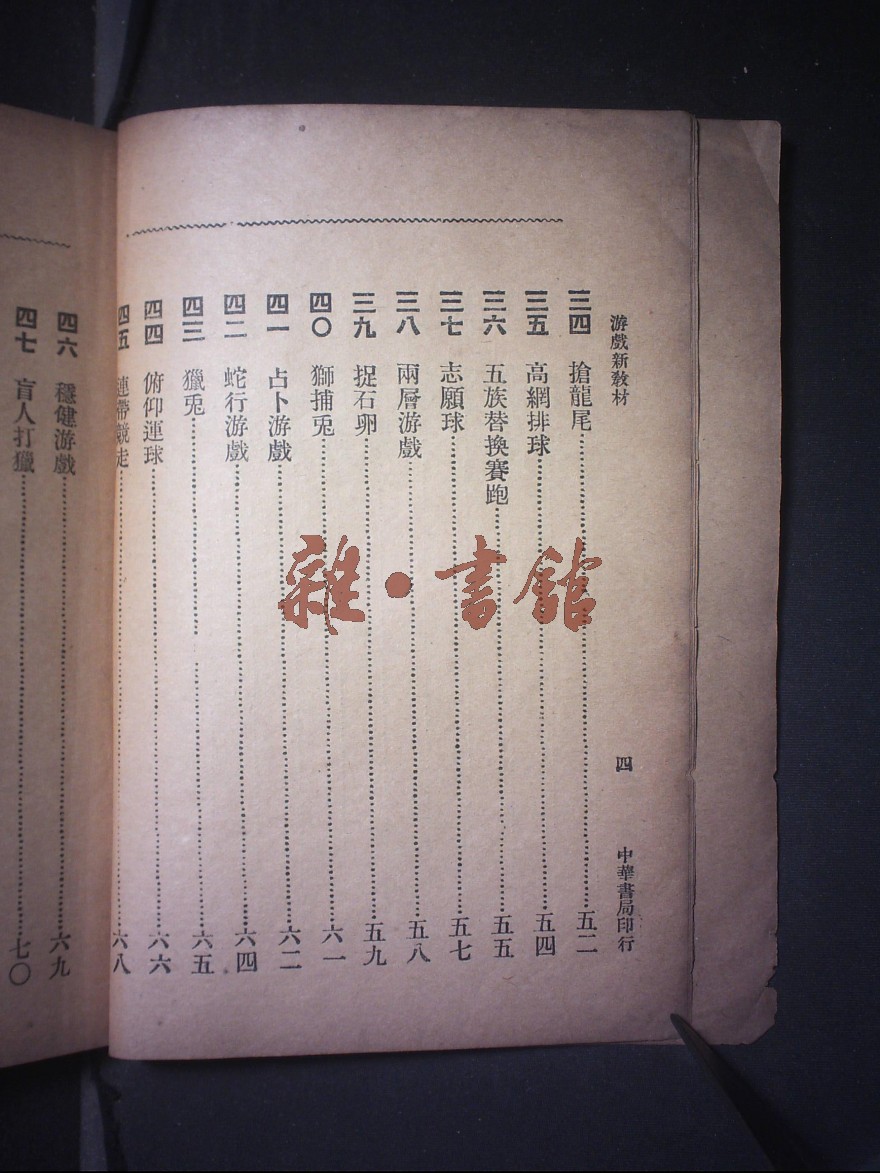 游戲新教材
四
中華書局印行
三四 搶龍尾 五二
三五 高網排球 五四
三六 五族替換賽跑 五五
三七 志願球 五七
三八 兩層游戲 五八
三九 捉石卵 五九
四〇 獅捕兎 六一
四一 占卜游戲 六二
四二 蛇行游戲 六四
四三 獵兎 六五
四四 俯仰運球 六六
四五 連帶競走 六八
四六 穩健游戲 六九
四七 盲人打獵 七〇
雜·書館